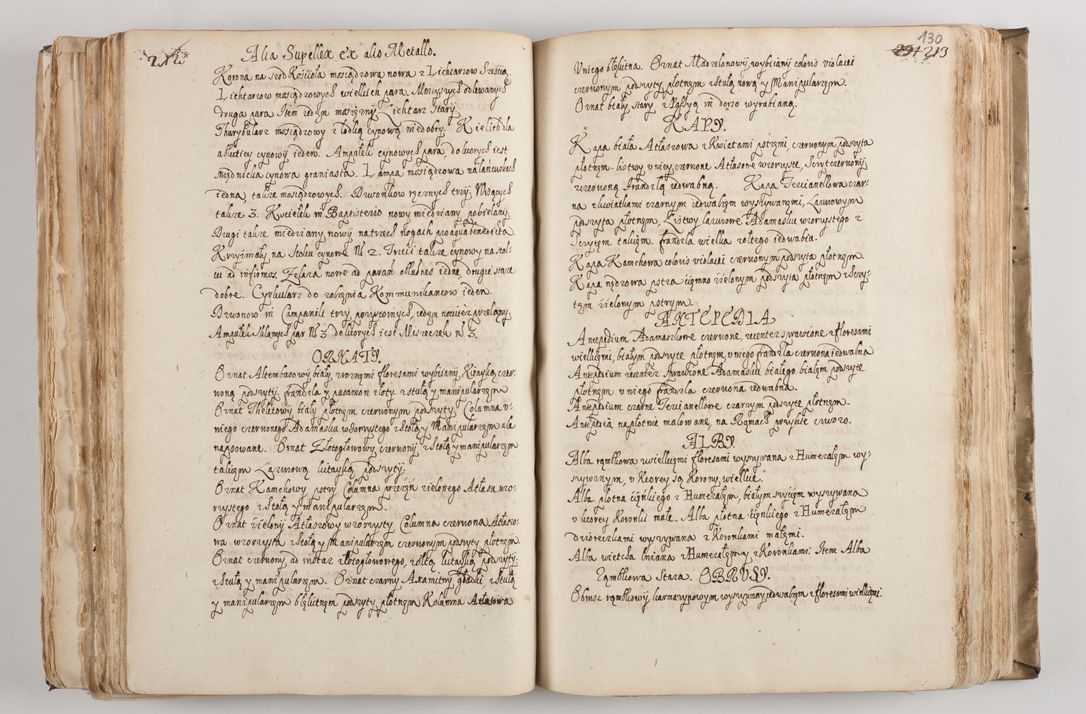 212
Alia Supellex ex alio Metallo.
Korona na srod Kościoła mosiądzowa nowa z Lichtarzow Sześcią
Lichtarzow mosiądzowych wielkich para. Mnieyszych odliwanych
druga para Item jeden mosiężny Lichtarz stary.
Thurybularz mosiądzowy z łodką cynową niedobry. Kielich dla
ablutiey cynowy ieden. Ampułek cynowych para, do ktorych iest
Miednicka cynowa graniasta. Lampa mosiądzowa na łancuskach
iedna, także mosiądzowych. Dzwonkow ręcznych trzy. Mnieyszych
także 3. Kociełek in Baptisterio nowy miedziany pobielany.
Drugi także miedziany nowy na trzech nogach pro aqua benedicta
Krzyżmały na Stolcu cynowe N 2. Trzeci także cynowy na stol-
cu ad infirmos. Żelaza nowe do pieczenia opłatkow jedne drugie stare
dobre. Cyrkularz do robienia Kommunikantow ieden.
Dzwonow in Campanili trzy, jeden noviter przelany.
Ampułek Sklanych par N 3 do ktorych iest Miseczek n. 3.
ORNATY.
Ornat Altembasowy biały, z roznymi floresami wybiiany, Kitayką czer-
woną podszyty, frandzlą y pasamon złoty, z stułą y manipularzem
Ornat Theletowy biały płotnem czerwonym podszyty Columna v
niego czerwonego Adamasku wzorzystego z Stułą y Manipularzem ale
napsowane. Ornat Złotogłowowy czerwony z Stułą y manipularzem
takiem Lazurową kitayką podszyty.
Ornat Kamchowy pstry Columna przezń zielonego Atłasu wzo-
rzystego z Stułą y manipularzem.
Ornat zielony Atłasowy wzorzysty Columna czerwona Atłaso-
wa wzorzysta z Stułą y Manipularzem czerwonym podszyty płotnem
Ornat czerwony ad instar złotogłowowego, zółtą kitayką podszyty,
z Stułą y manipularzem. Ornat czarny Axamitny gładki z Stułą
y manipularzem błękitnem podszyty płotnem Kolumna Atłasowa
130
291 213
Vniego błękitna. Ornat Mazelonowy wybiiany coloris violacei
czerwonym podszyty płotnem z stułą nową y Manipularzem.
Ornat biały stary, z Passyą in dorso wyrabianą.
KAPY.
Kapa biała Atłasowa z kwiatami pstremi, czerwonym podszyta
płotnem. listwy v niey czerwone Atłasowe wzorzyste, Szczyt czerwony
z czerwoną frandzlą iedwabną. Kapa Tercianellowa czar-
na z kwiatkami czarnym iedwabiem wyszywanemi, Lazurowym
podszyta płotnem, Listwy lazurowe Adamasku wzorzystego z
Szczytem takim. frandzla wielka zółtego iedwabiu.
Kapa Kamchowa coloris violacei czerwonym podszyta płotnem
Kapa nędzowa pstra ciemno zielonym podszyta płotnem z Szczy-
tem zielonym pstrym.
ANTEPEDIA
Antepedium Adamaszkowe czerwone, recenter sprawione z floresami
wielkiemi, białym podszyte płotnem, v niego frandzla czerwona iedwabna
Antepedium recenter sprawione Adamasku białego białym podszyte
płotnem v niego frandzla czerwona iedwabna.
Antepedium czarne Tercianellowe czarnym podszyte płotnem.
Antepedia na płotnie malowane, na Ramach przybite czworo.
ALBY
Alba rąmbkowa z wielkiemi floresami wyszywana z Humerałem wy-
szywanym, v ktorey są Korony wielkie.
Alba płotna cienkiego z Humerałem, białym szyciem wyszywana
v ktorey Koronki małe. Alba płotna cienkiego z Humerałem
Dziureczkami wyszywana z Koronkami małemi.
Alba wietcha lniana z Humerałem y z Koronkami. Item Alba
Rąmbkowa Stara. OBRUSY.
Obrus rąmbkowy karmazynowym wyszywany iedwabiem z floresami wielkiemi.